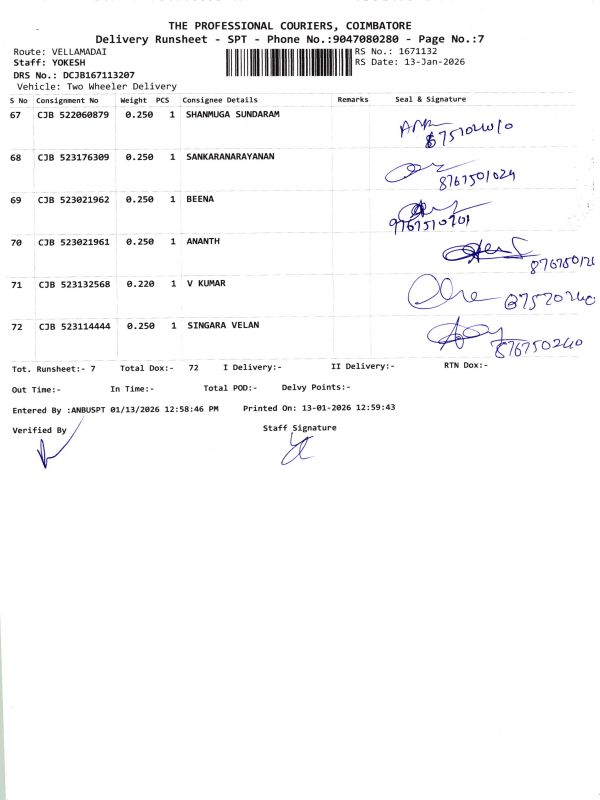 THE PROFESSIONAL COURIERS, COIMBATORE
Delivery Runsheet - SPT - Phone No.:9047080280 - Page No.:7
Route: VELLAMADAI RS No.: 1671132
Staff: YOKESH RS Date: 13-Jan-2026
DRS No.: DCJB167113207
Vehicle: Two Wheeler Delivery
S No Consignment No Weight PCS Consignee Details Remarks Seal & Signature
67 CJB 522060879 0.250 1 SHANMUGA SUNDARAM
68 CJB 523176309 0.250 1 SANKARANARAYANAN
8767501024
69 CJB 523021962 0.250 1 BEENA
70 CJB 523021961 0.250 1 ANANTH
71 CJB 523132568 0.220 1 V KUMAR
72 CJB 523114444 0.250 1 SINGARA VELAN
Tot. Runsheet:- 7 Total Dox:- 72 I Delivery:- II Delivery:- RTN Dox:-
Out Time:- In Time:- Total POD:- Delvy Points:-
Entered By :ANBUSPT 01/13/2026 12:58:46 PM Printed On: 13-01-2026 12:59:43
Verified By Staff Signature